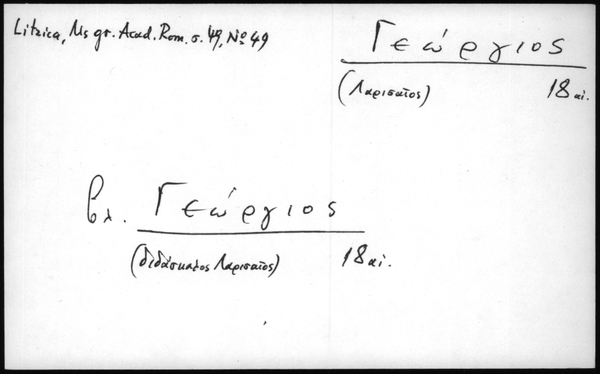 Litzica, Ms gr. Acad. Rom. σ. 49, No 49
Γεώργιος
(Λαρισαῖος) 18 αἰ.
βλ. Γεώργιος
(διδάσκαλος Λαρισαῖος) 18 αἰ.